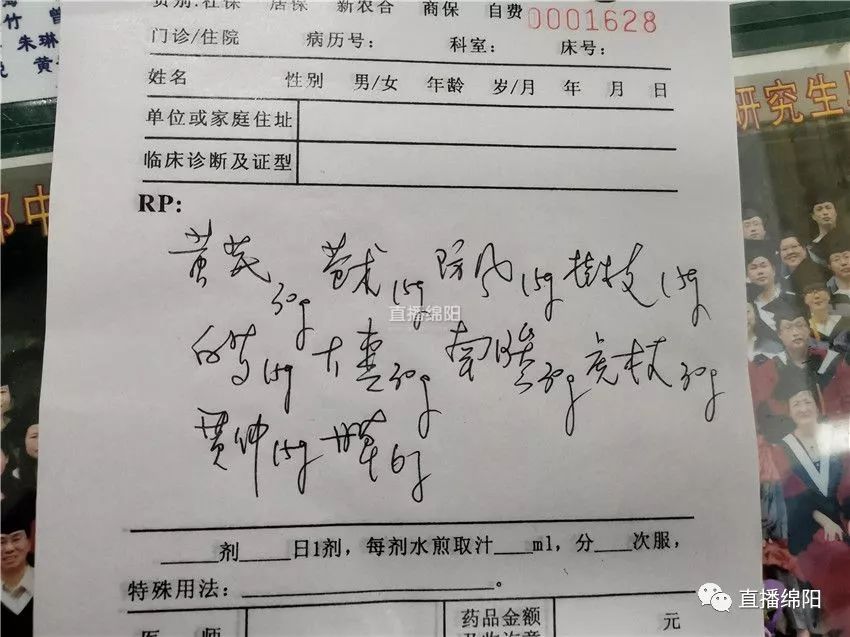 竹
朱琳
黄
费别:社保 居保 新农合 商保 自费
0001628
门诊/住院 病历号: 科室: 床号:
姓名 性别 男/女 年龄 岁/月 年 月 日
单位或家庭住址
临床诊断及证型
RP:
黄芪30g 苍术15g 防风15g 桂枝15g
白芍15g 大枣30g 虎杖30g
贯仲15g 甘草6g
直播绵阳
剂 日1剂,每剂水煎取汁 ml,分 次服,
特殊用法: 。
医师 药品金额 元
研究生
中
直播绵阳